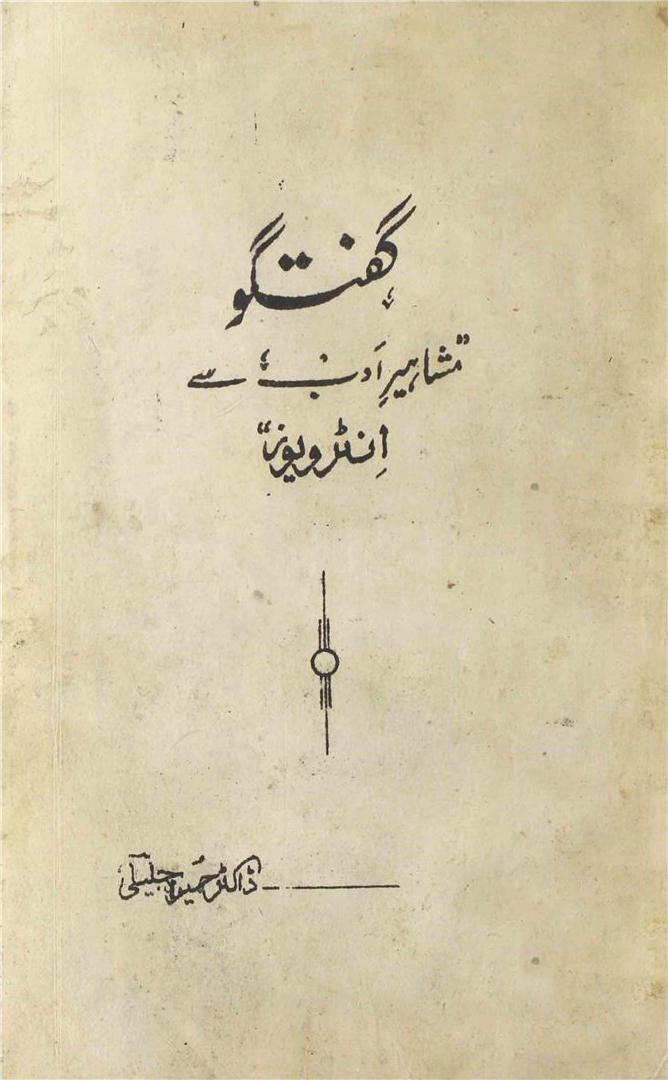 گفتگو
"مشاہیرِ اَدب سے
اِنٹرویوز"
ڈاکٹر حمیرہ جلیلی